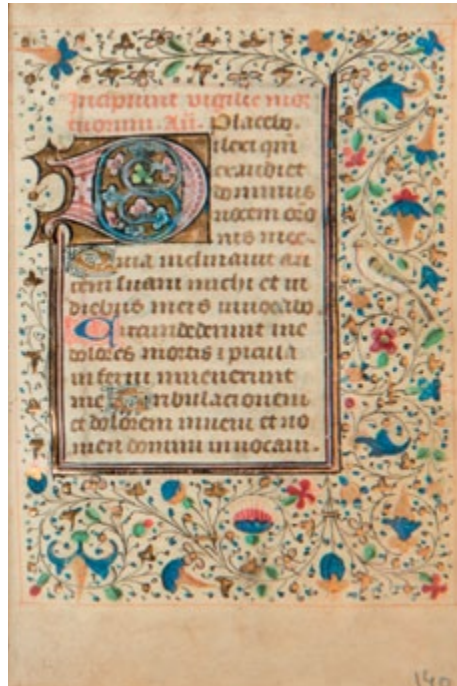 Incipiunt vigilie mor
tuorum. An. Placebo.
Dilexi qm
exaudiet
dominus
uocem orō
nis mee.
Quia inclinauit au
rem suam michi et in
diebus meis inuocabo.
Circumdederunt me
dolores mortis ⁊ picula
inferni inuenerunt
me Tribulacionem
et dolorem inueni et no
men domini inuocaui.